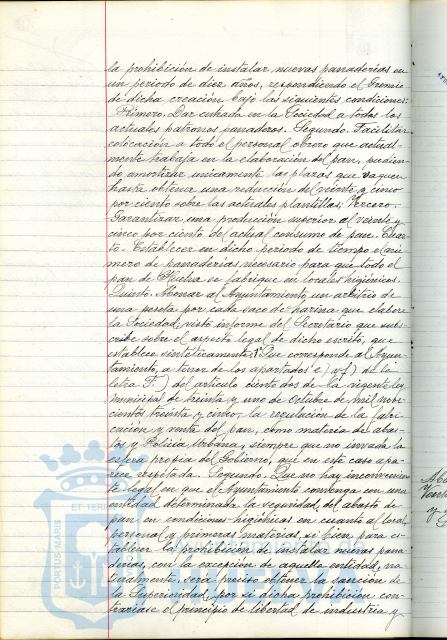 la prohibición de instalar nuevas panaderías en
un periodo de diez años, respondiendo el Gremio
de dicha creación bajo las siguientes condiciones:
Primero. Dar entrada en la Sociedad a todos los
actuales patronos panaderos. Segundo. Facilitar
colocación a todo el personal obrero que actual-
mente trabaja en la elaboración del pan, pudien-
do amortizar unicamente las plazas que vaquen
hasta obtener una reducción del veinte y cinco
por ciento sobre las actuales plantillas; Tercero.
Garantizar una producción superior al veinte y
cinco por ciento del actual consumo de pan. Cuar-
to. Establecer en dicho periodo de tiempo el nú-
mero de panaderías necesario para que todo el
pan de Huelva se fabrique en locales higiénicos.
Quinto. Abonar al Ayuntamiento un arbitrio de
una peseta por cada saco de harina que elabore
la Sociedad; visto informe del Secretario que sus-
cribe sobre el aspecto legal de dicho escrito, que
establece sintéticamente: 1º Que corresponde al Ayun-
tamiento, a tenor de los apartados e) y f) de la
letra F.) del artículo ciento dos de la vigente ley
municipal de treinta y uno de Octubre de mil nove-
cientos treinta y cinco, la regulación de la fabri-
cación y venta del pan, como materia de abas-
tos y Policía Urbana, siempre que no invada la
esfera propia del Gobierno, que en este caso apa-
rece respetada. Segundo. Que no hay inconvenien-
te legal en que el Ayuntamiento convenga con una
entidad determinada la seguridad del abasto de
pan en condiciones higiénicas en cuanto al local,
personal y primeras materias, si bien para es-
tablecer la prohibición de instalar nuevas pana-
derías, con la excepción de aquella entidad, na-
turalmente, será preciso obtener la sanción de
la Superioridad, por si dicha prohibición con-
trariase el principio de libertad de industria y
PORTUS MARIS
ET TER